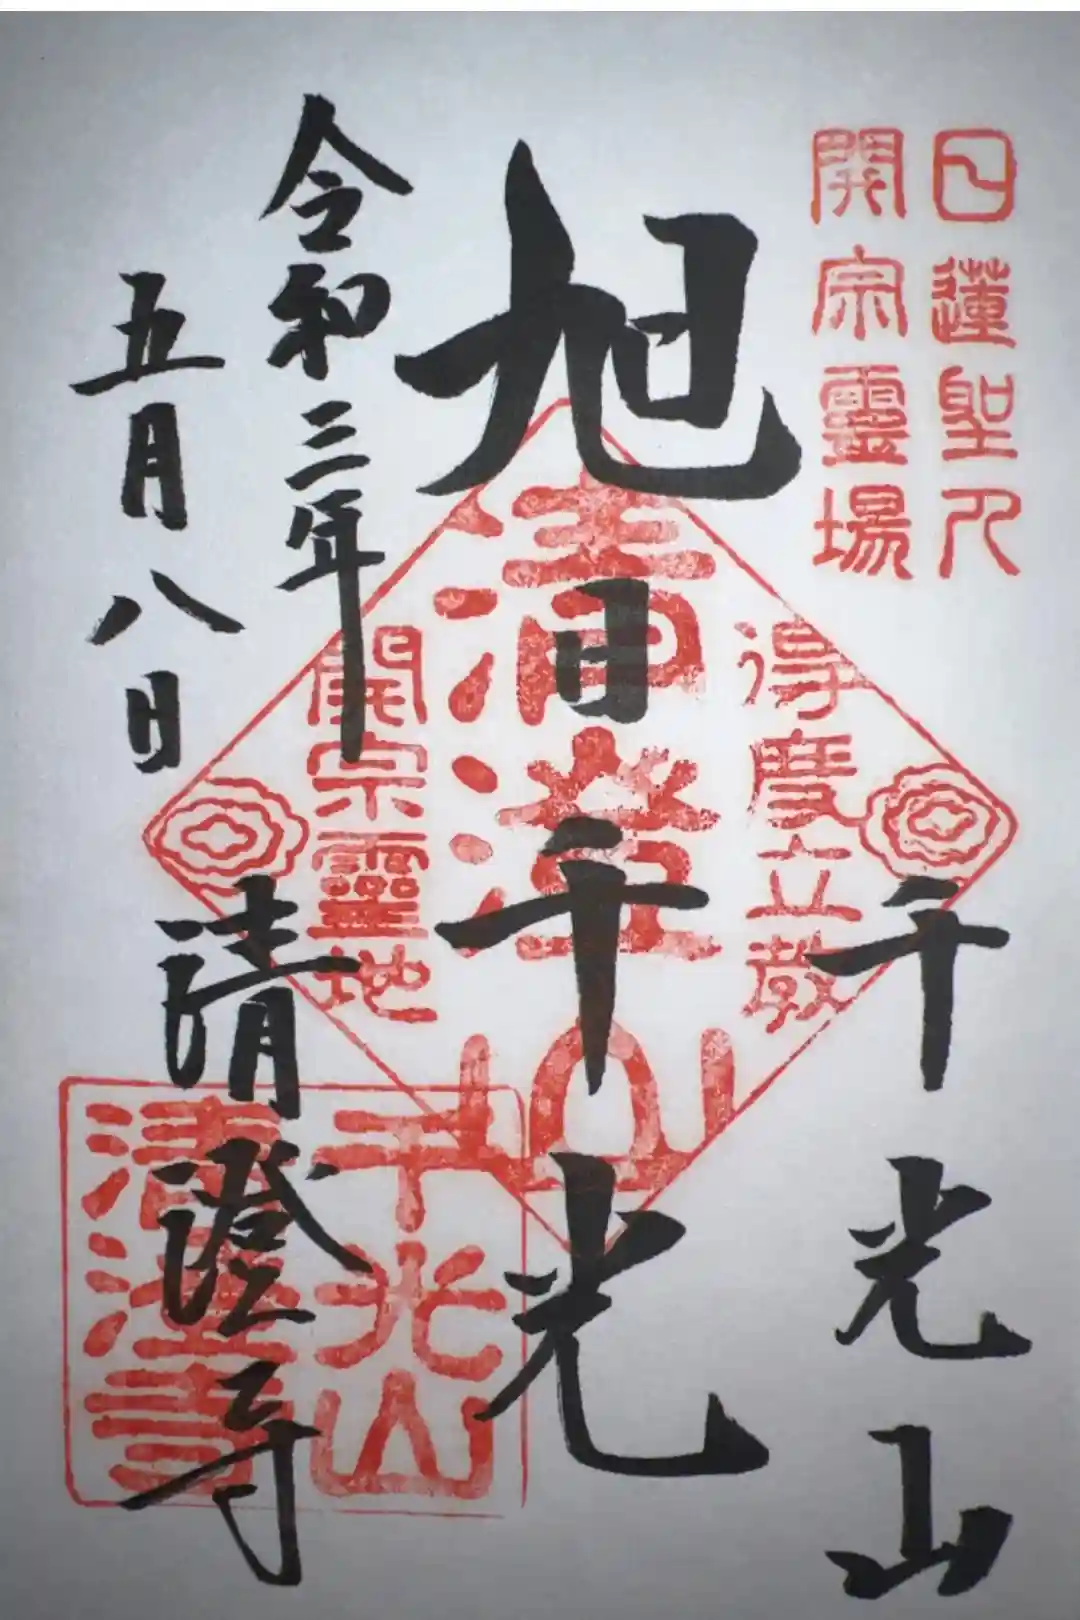 日蓮聖人
開宗霊場
千光山
旭日千光
清澄山
得度立教
開宗霊地
令和三年
五月八日
清澄寺
千光山
清澄寺